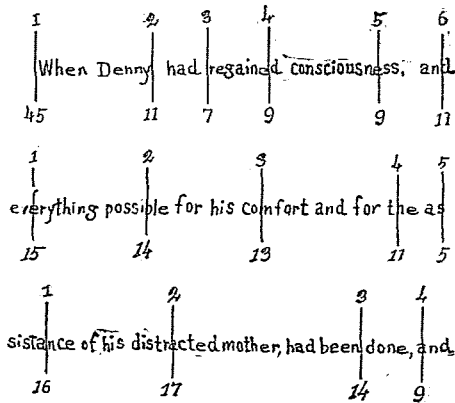 1 2 3 4 5 6
When Denny had regained consciousness, and
45 11 7 9 9 11
1 2 3 4 5
everything possible for his comfort and for the as
15 14 13 11 5
1 2 3 4
sistance of his distracted mother, had been done, and
16 17 14 9